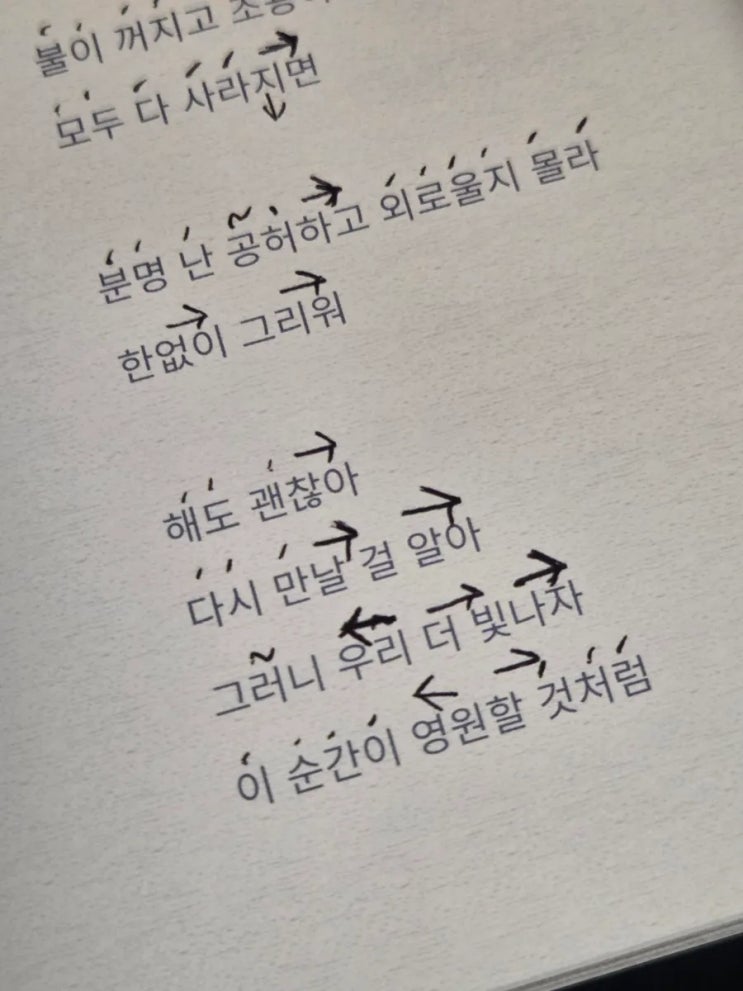 불이 꺼지고
모두 다 사라지면
분명 난 공허하고 외로울지 몰라
한없이 그리워
해도 괜찮아
다시 만날 걸 알아
그러니 우리 더 빛나자
이 순간이 영원할 것처럼